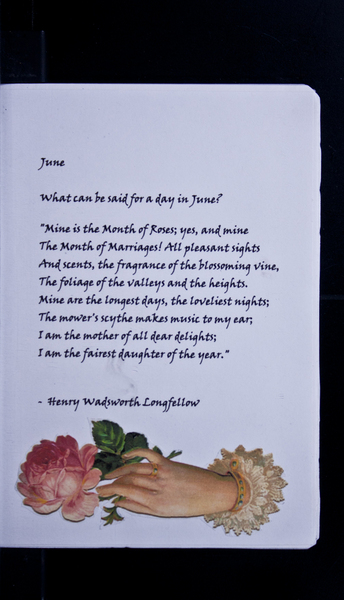 June
What can be said for a day in June?
"Mine is the Month of Roses; yes, and mine
The Month of Marriages! All pleasant sights
And scents, the fragrance of the blossoming vine,
The foliage of the valleys and the heights.
Mine are the longest days, the loveliest nights;
The mower's scythe makes music to my ear;
I am the mother of all dear delights;
I am the fairest daughter of the year."
- Henry Wadsworth Longfellow